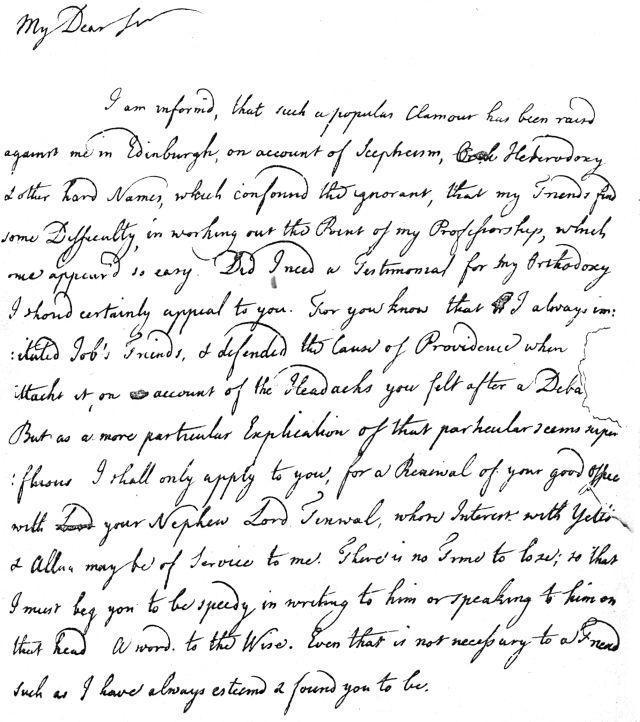 My Dear Sir
I am inform'd, that such a popular Clamour has been raisd
against me in Edinburgh, on account of Scepticism, Heterodoxy
& other hard Names, which confound the ignorant, that my Friends find
some Difficulty, in working out the Point of my Professorship, which
once appear'd so easy. Did I need a Testimonial for my Orthodoxy
I should certainly appeal to you. For you know that I always im:
:itated Job's Friends, & defended the Cause of Providence when
attackt it, on account of the Headachs you felt after a Deba
But as a more particular Explication of that particular seems super
:fluous I shall only apply to you, for a Renewal of your good Offices
with your Nephew Lord Tinwal, whose Interest with Yetts
& Allan may be of Service to me. There is no Time to lose; so that
I must beg you to be speedy in writing to him or speaking to him on
that head A word to the Wise. Even that is not necessary to a Friend
such as I have always esteemd & found you to be.